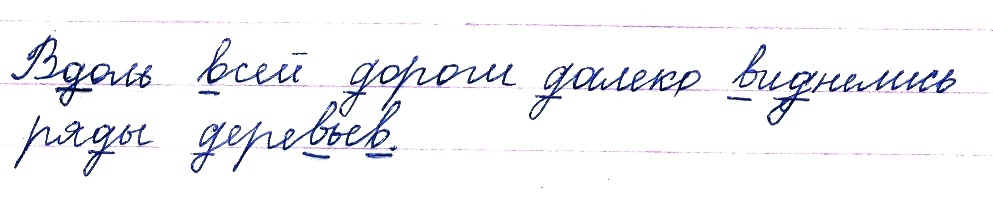 Вдоль всей дороги далеко виднелись
ряды деревьев.